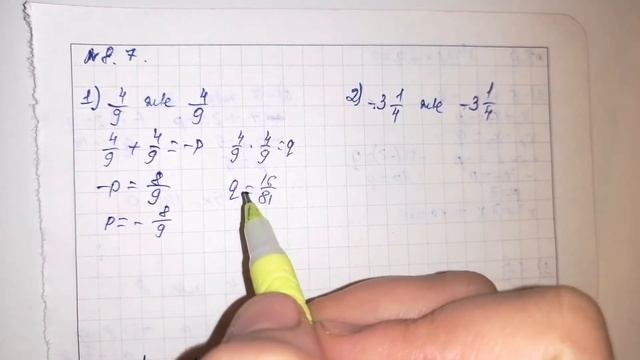 №8.7.
1) 4/9 және 4/9
4/9 + 4/9 = -p    4/9 · 4/9 = q
-p = 8/9    q = 16/81
p = - 8/9
2) -3 1/4 және -3 1/4